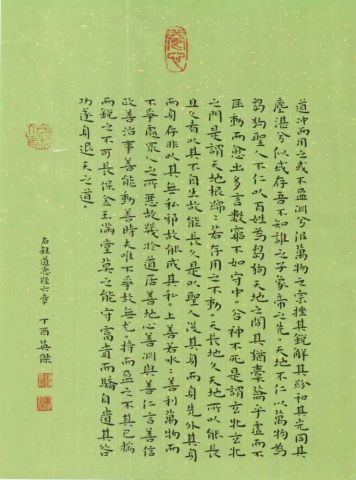 道冲而用之或不盈淵兮似萬物之宗挫其銳解其紛和其光同其
塵湛兮似或存吾不知誰之子象帝之先。天地不仁以萬物為
芻狗聖人不仁以百姓為芻狗天地之間其猶橐籥乎虛而不
屈動而愈出多言數窮不如守中。谷神不死是謂玄牝玄牝
之門是謂天地根綿:若存用之不動。天長地久天地所以能長
且久者以其不自生故能長久是以聖人後其身而身先外其身
而身存非以其無私邪故能成其私。上善若水:善利萬物而
不爭處眾人之所惡故幾於道居善地心善淵與善仁言善信
政善治事善能動善時夫唯不爭故無尤。持而盈之不其已揣
而銳之不可長保金玉滿堂莫之能守富貴而驕自遺其咎
功遂身退天之道。
右錄道德經六章 丁酉英傑